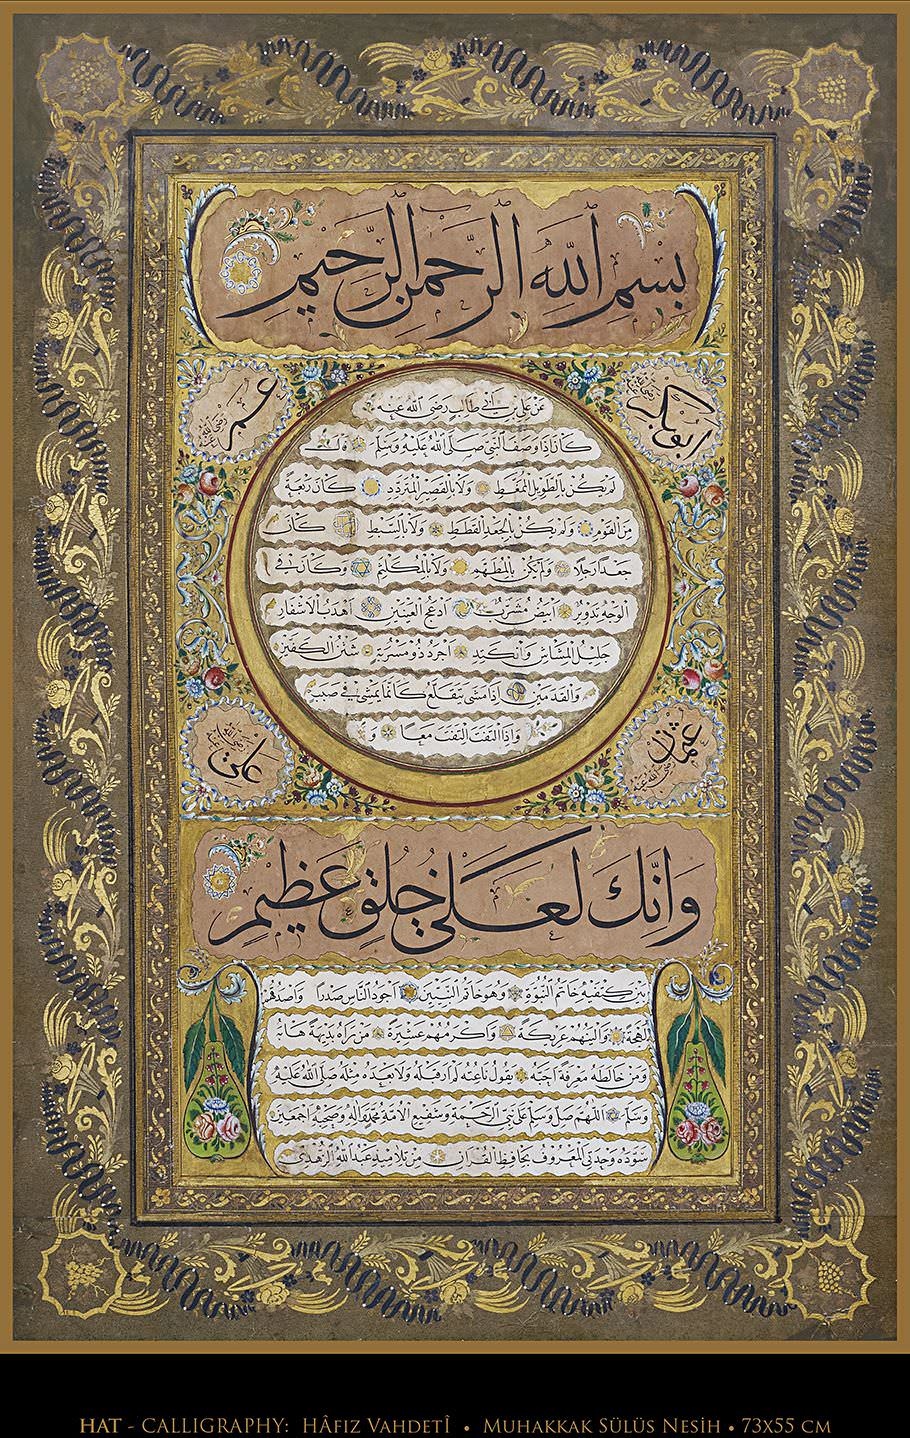 بسم الله الرحمن الرحيم
ابوبكر رضي الله عنه
عمر رضي الله عنه
عن علي بن ابي طالب رضي الله عنه
كان اذا وصف النبي صلى الله عليه وسلم قال
لم يكن بالطويل الممغط ولا بالقصير المتردد كان ربعة
من القوم ولم يكن بالجعد القطط ولا بالسبط كان
جعدا رجلا ولم يكن بالمطهم ولا بالمكلثم وكان في
الوجه تدوير ابيض مشرب ادعج العينين اهدب الاشفار
جليل المشاش والكتد اجرد ذو مسربة شثن الكفين
والقدمين اذا مشى يتقلع كانما يمشي في صبب
واذا التفت التفت معا و
عثمان رضي الله عنه
علي رضي الله عنه
وَاِنَّكَ لَعَلى خُلُقٍ عَظيمٍ
بين كتفيه خاتم النبوة وهو خاتم النبيين اجود الناس صدرا واصدقهم
لهجة والينهم عريكة واكرمهم عشيرة من رآه بديهة هابه
ومن خالطه معرفة احبه يقول ناعته لم ار قبله ولا بعده مثله صلى الله عليه
وسلم اللهم صل وسلم على نبي الرحمة وشفيع الامة محمد وآله وصحبه اجمعين
سوده وحدتي المعروف بحافظ القرآن من تلاميذ عبد الله الزهدي
HAT - CALLIGRAPHY: HÂFIZ VAHDETÎ • MUHAKKAK SÜLÜS NESİH • 73X55 CM